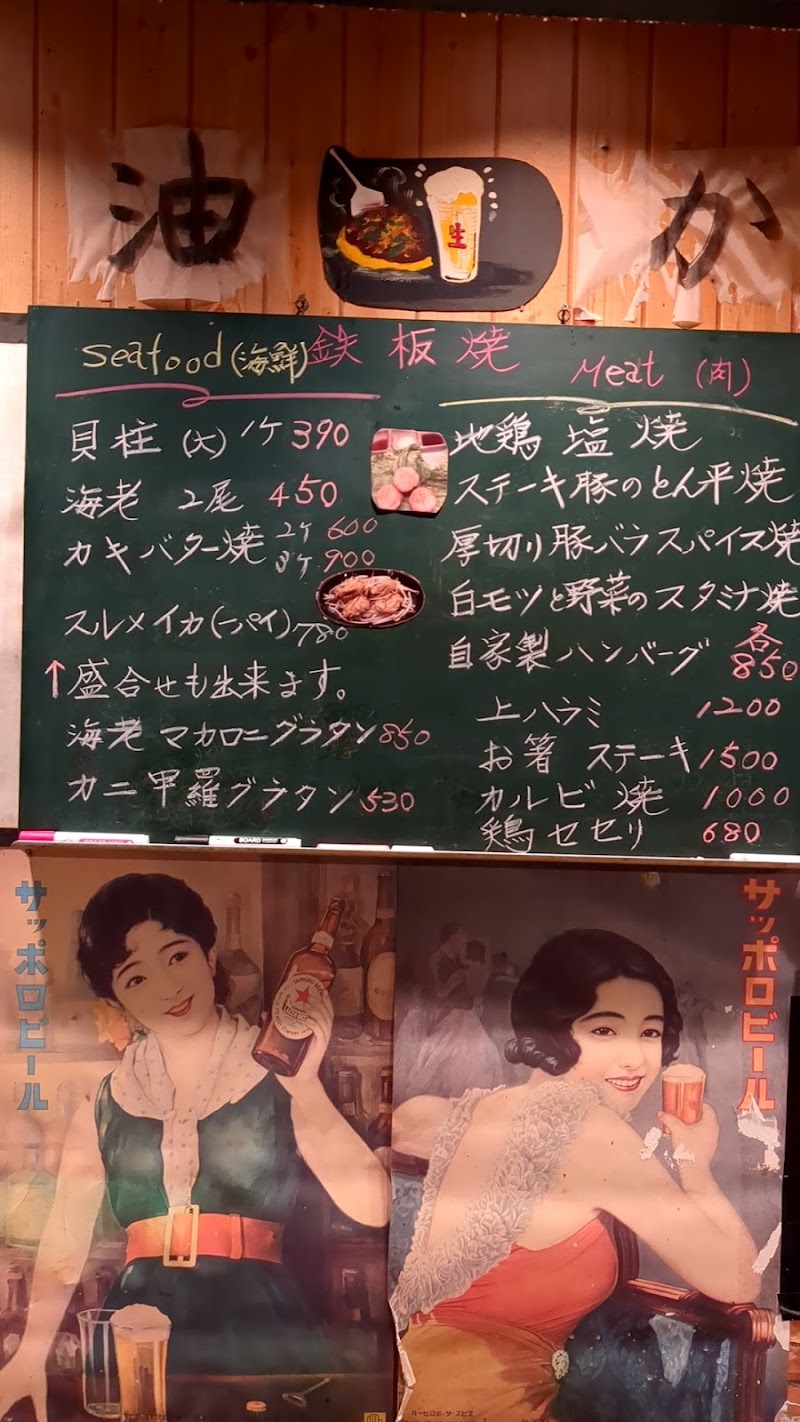 油
生
か
seafood (海鮮) 鉄板焼
Meat (肉)
貝柱 (大) 1ケ 390
海老 2尾 450
カキバター焼 2ケ 600
3ケ 900
スルメイカ (一パイ) 780
↑盛合せも出来ます。
海老マカロニグラタン 850
カニ甲羅グラタン 530
地鶏塩焼
ステーキ豚のとん平焼
厚切り豚バラスパイス焼
白モツと野菜のスタミナ焼
自家製ハンバーグ 各850
上ハラミ 1200
お箸ステーキ 1500
カルビ焼 1000
鶏セセリ 680
サッポロビール
サッポロビール